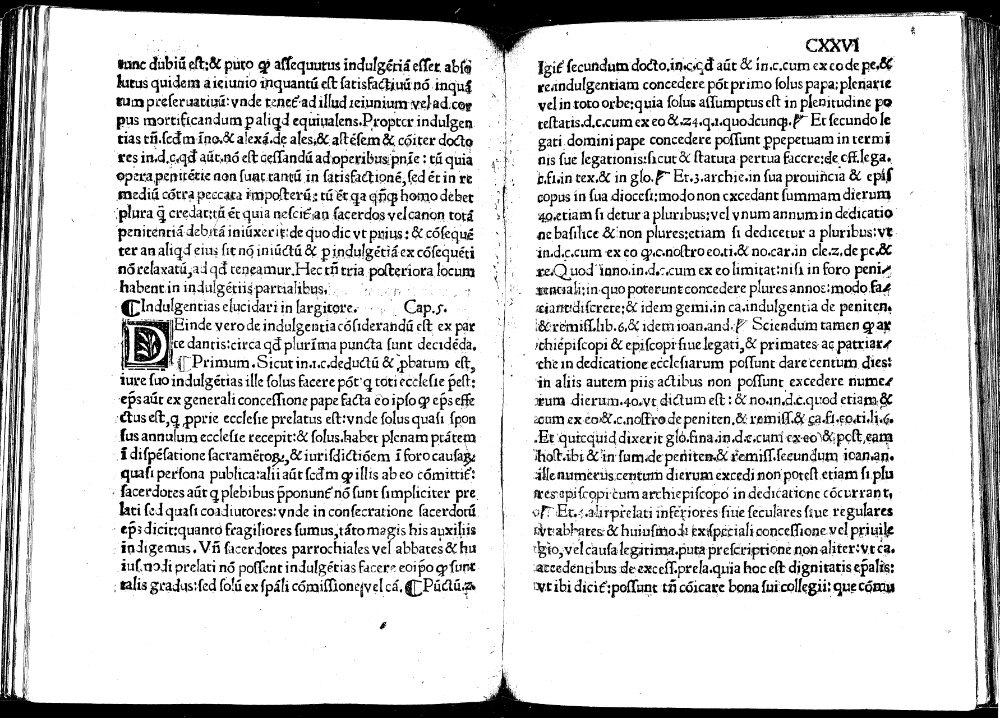 tunc dubiũ est:& puto ꝙ assequutus indulgẽtiã esset abso
lutus quidem a ieiunio inquantũ est satisfactiuũ nõ inquã
tum preseruatiuũ: vnde teneť ad illud ieiunium vel ad cor
pus mortificandum p aliqd equiualens. Propter indulgen
tias tñ. scdm ĩno.& alexã.de ales;& astẽsem & cõiter docto
res in.d.c.qd aũt.nõ est cessandũ ad operibus pñie: tũ quia
opera penitẽtie non sunt tantũ in satisfactionẽ, sed ẽt in re
mediũ cõtra peccata imposterũ: tũ ẽt qa qñqꝫ homo debet
plura q̃ credat: tũ ẽt quia nesciť an sacerdos vel canon totã
penitentiã debitã iniũxerit: de quo dic vt prius: & cõsequẽ
ter an aliqd eius sit nõ iniũctũ & p indulgẽtiã ex cõsequẽti
nõ relaxatũ, ad qd teneamur. Hec tñ tria posteriora locum
habent in indulgẽtiis partialibus.
¶Indulgentias elucidari in largitore. Cap.5.
DEinde vero de indulgentia cõsiderandũ est ex par
te dantis: circa qd plurima puncta sunt decidẽda.
¶Primum. Sicut in.1.c.deductũ & pbatum est,
iure suo indulgẽtias ille solus facere põt q toti ecclesie pest:
eps aũt ex generali concessione pape facta eo ipso ꝙ eps effe
ctus est, q pprie ecclesie prelatus est: vnde solus quasi spon
sus annulum ecclesie recepit: & solus.habet plenam ptãtem
ĩ dispẽsatione sacramẽtoꝝ, & iurisdictiõem ĩ foro causaꝝ
quasi persona publica: alii aũt scdm ꝙ illis ab eo cõmittiť:
sacerdotes aũt q plebibus pponunť nõ sunt simpliciter pre
lati sed quasi coadiutores: vnde in consecratione sacerdotũ
eps dicit: quanto fragiliores sumus, tãto magis his auxiliis
indigemus. Vñ sacerdotes parrochiales vel abbates & hu
iusmodi prelati nõ possent indulgẽtias facere eoipo ꝙ sunt
talis gradus: sed solũ ex spãli cõmissione, vel cã. ¶Pũctũ.2.
CXXVI
Igiť secundum docto.in.c.qd aũt & in.c.cum ex eo de pe.&
re.indulgentiam concedere põt primo solus papa; plenarie
vel in toto orbe; quia solus assumptus est in plenitudine po
testatis.d.c.cum ex eo &.24.q.1.quodcunqꝫ. ¶ Et secundo le
gati domini pape concedere possunt ppetuam in termi
nis sue legationis: sicut & statuta pertua facere: de off.lega.
c.fi.in tex.& in glo. ¶ Et.3.archie.in sua prouincia & epis
copus in sua diocesi: modo non excedant summam dierum
40.etiam si detur a pluribus: vel vnum annum in dedicatio
ne basilice & non plures; etiam si dedicetur a pluribus: vt
in.d.c.cum ex eo ꝙ.c.nostro eo.ti.& no.car.in cle.2.de pe.&
re. Quod inno.in.d.c.cum ex eo limitat: nisi in foro peni
tenciali; in quo poterunt concedere plures annos: modo fa
ciant discrete; & idem gemi.in ca.indulgentia de peniten.
& remiss.lib.6.& idem ioan.and. ¶ Sciendum tamen ꝙ ar
chiepiscopi & episcopi siue legati, & primates ac patriar
che in dedicatione ecclesiarum possunt dare centum dies:
in aliis autem piis actibus non possunt excedere nume
rum dierum.40.vt dictum est: & no.in.d.c.quod etiam &
cum ex eo &.c.nostro de peniten.& remiss.& ca.fi.eo.ti.li.6.
Et quicquid dixerit glo.fina.in.d.c.cum ex eo & post eam
host.ibi & in sum.de peniten.& remiss.secundum ioan.an.
ille numerus centum dierum excedi non potest etiam si plu
res episcopi cum archiepiscopo in dedicatione cõcurrant.
¶ Et.4.alii prelati inferiores siue seculares siue regulares
vt abbates & huiusmodi ex speciali concessione vel priuile
gio, vel causa legitima.puta prescriptione non aliter: vt ca.
accedentibus de excess.prela.quia hoc est dignitatis epalis:
vt ibi diciť: possunt tñ cõicare bona sui collegii: que cõmu